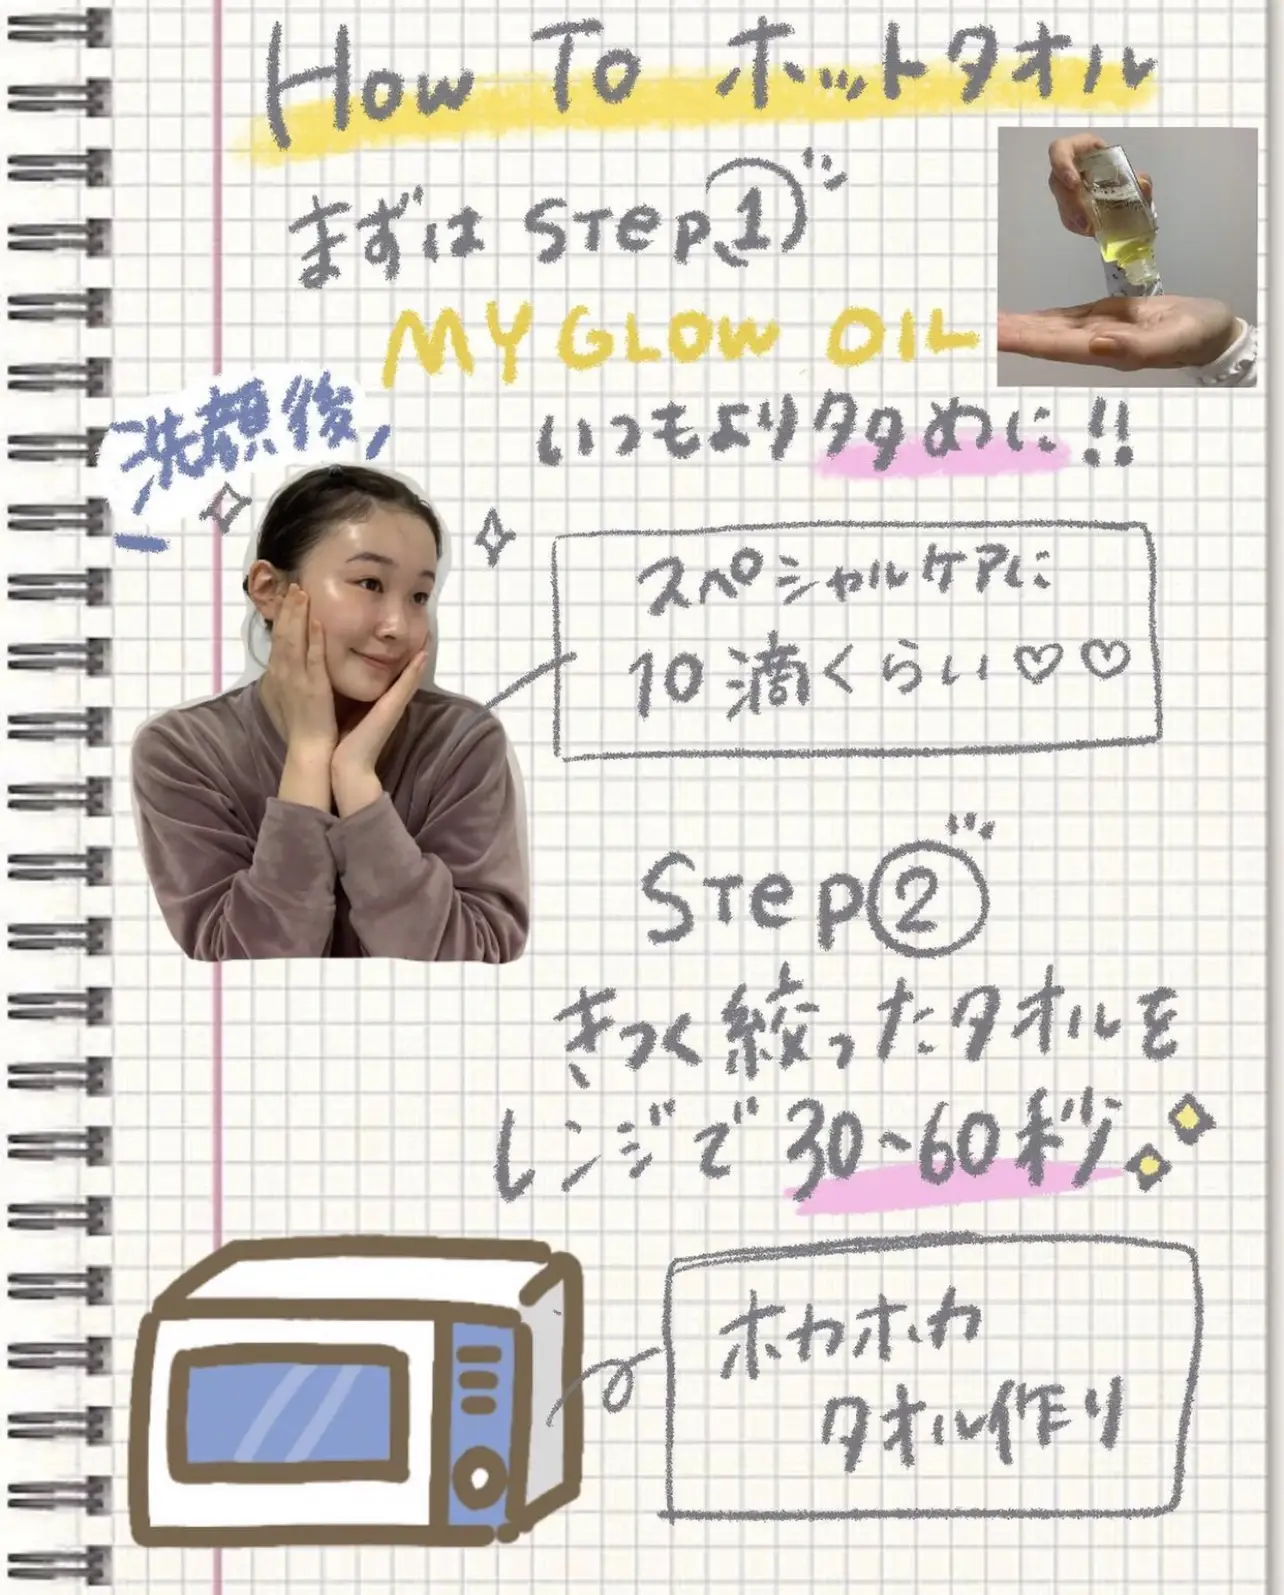 How To ホットタオル
まずは STEP①
MY GLOW OIL
洗顔後、
いつもより多めに!!
スペシャルケアに
10滴くらい♡♡
STEP②
きつく絞ったタオルを
レンジで30~60秒
ホカホカ
タオル作り